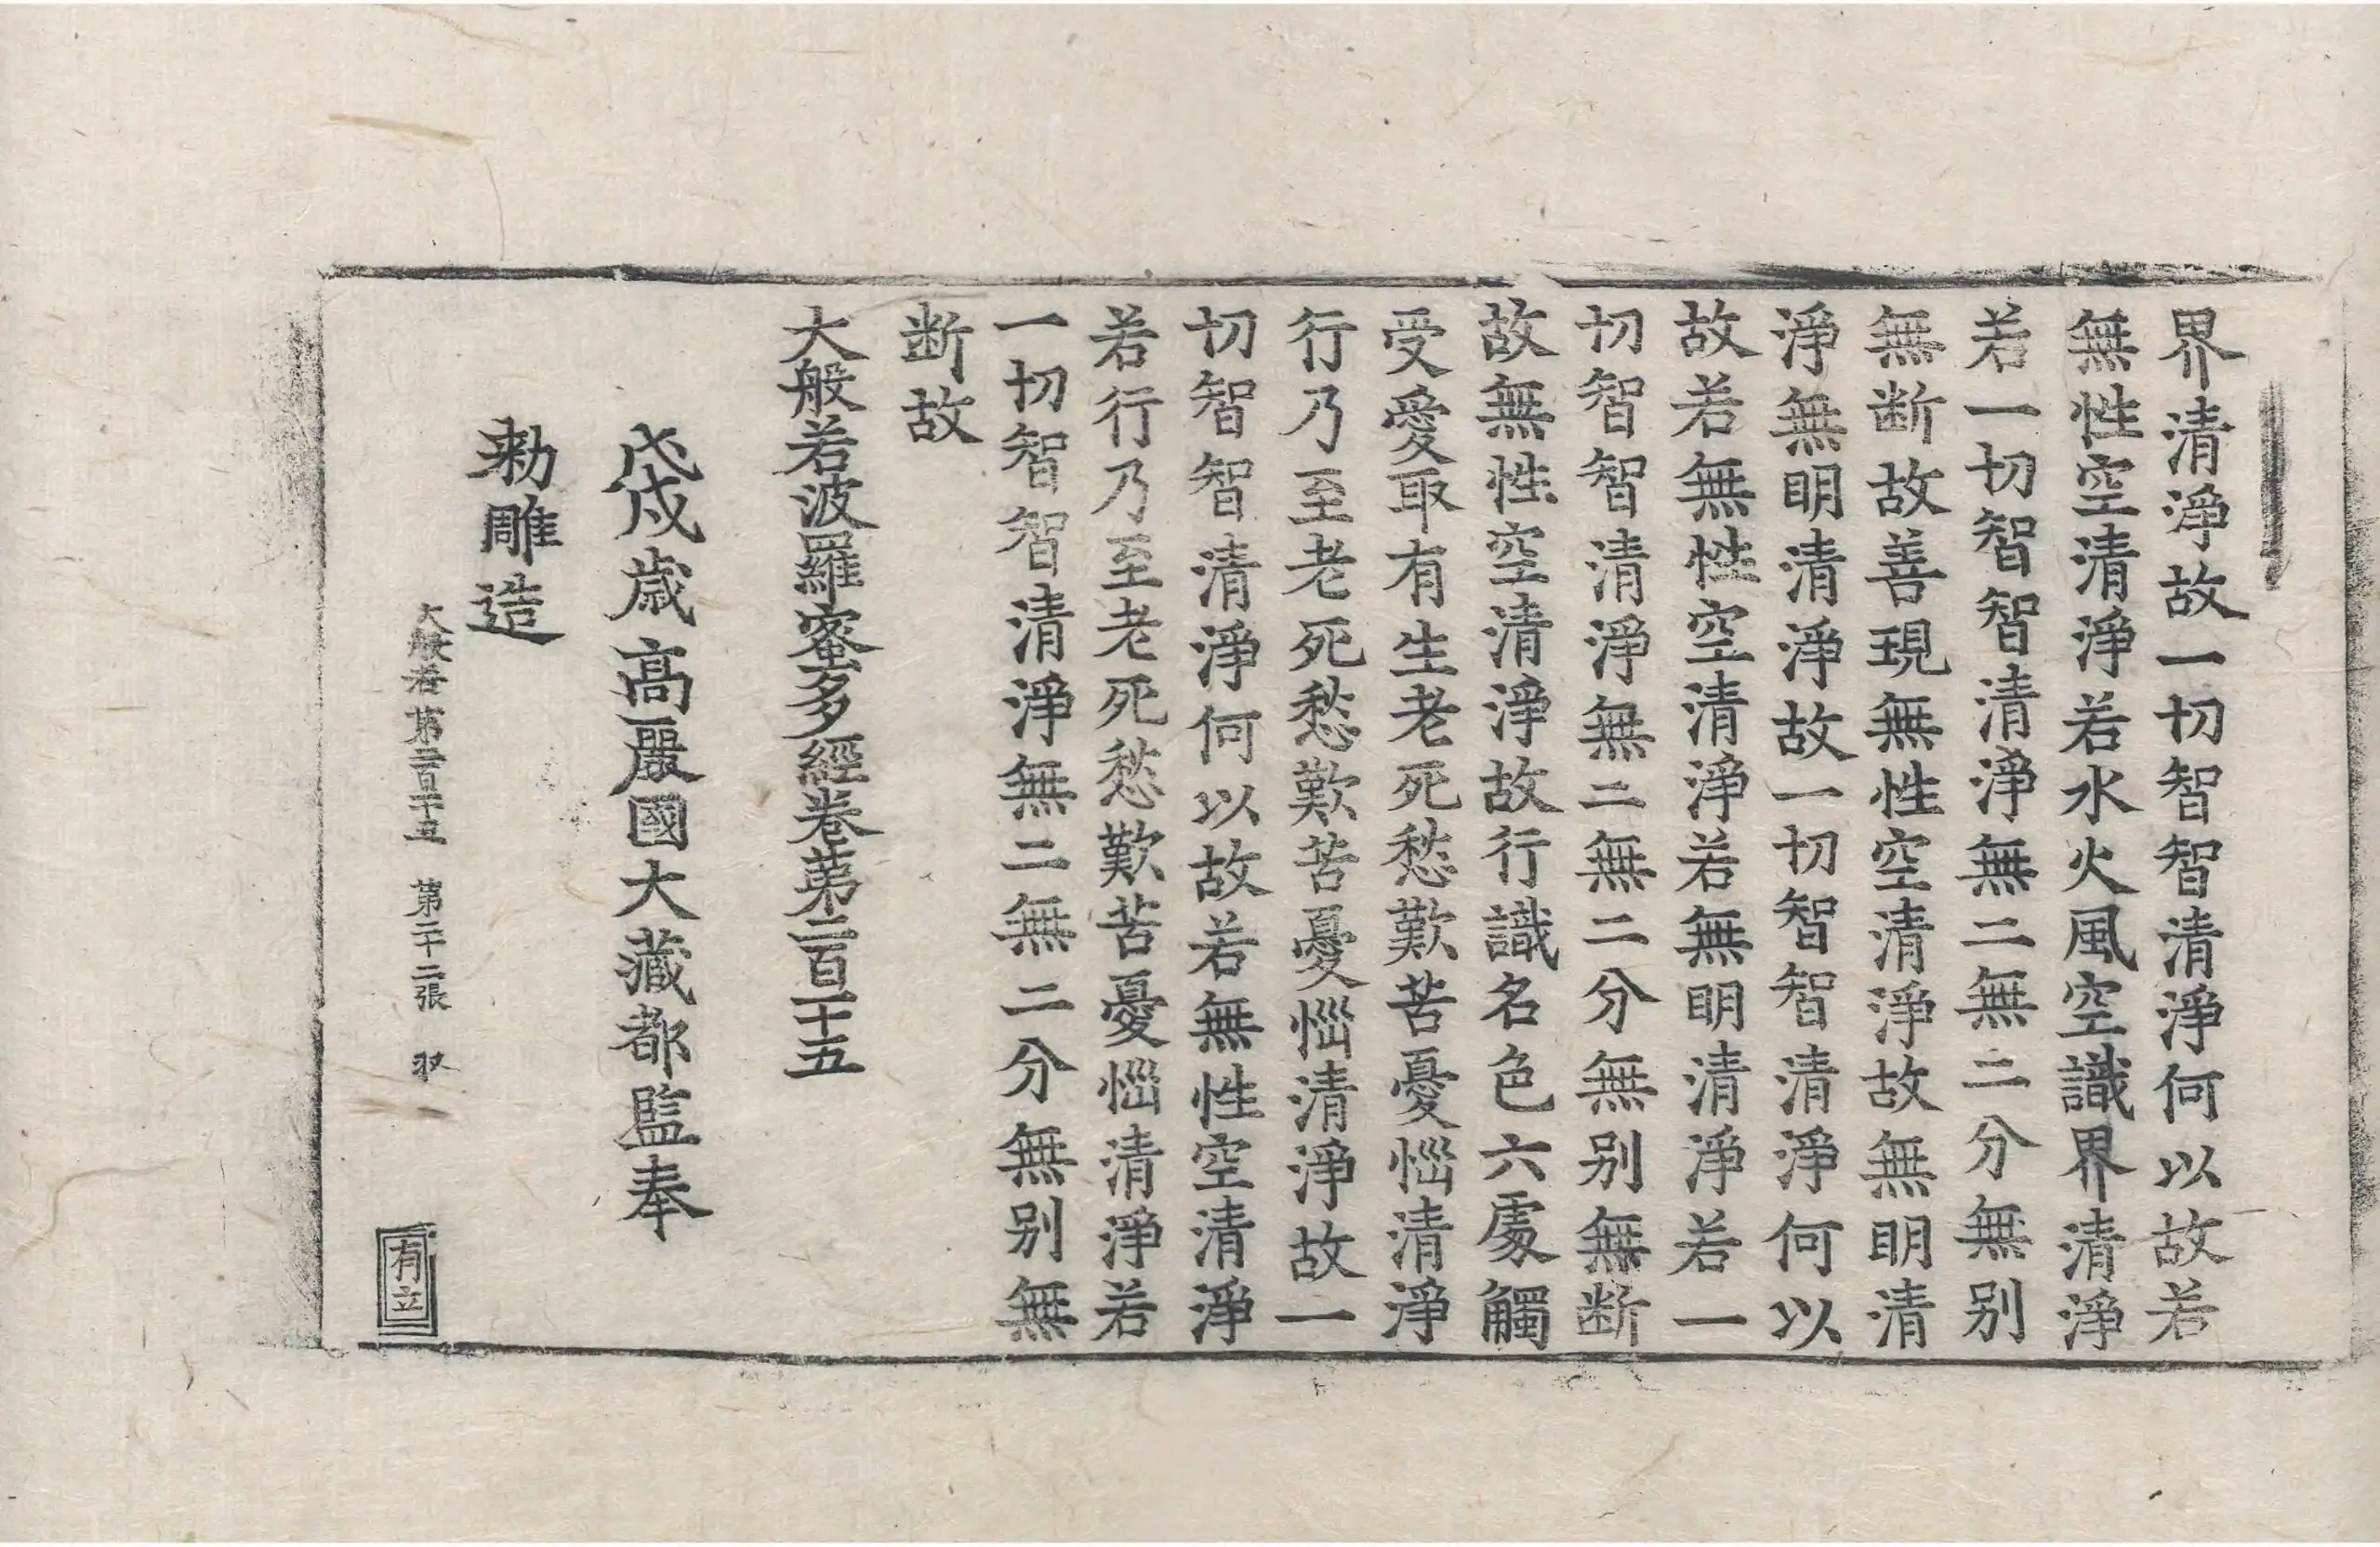 界清淨故一切智智清淨何以故若
無性空清淨若水火風空識界清淨
若一切智智清淨無二無二分無別
無断故善現無性空清淨故無明清
淨無明清淨故一切智智清淨何以
故若無性空清淨若無明清淨若一
切智智清淨無二無二分無别無断
故無性空清淨故行識名色六處觸
受愛取有生老死愁歎苦憂惱清淨
行乃至老死愁歎苦憂惱清淨故一
切智智清淨何以故若無性空清淨
若行乃至老死愁歎苦憂惱清淨若
一切智智清淨無二無二分無别無
断故
大般若波羅蜜多經卷第二百十五
戊戌歲高麗國大藏都監奉
勅雕造
大般若 第二百十五 第二十二張 収
有立